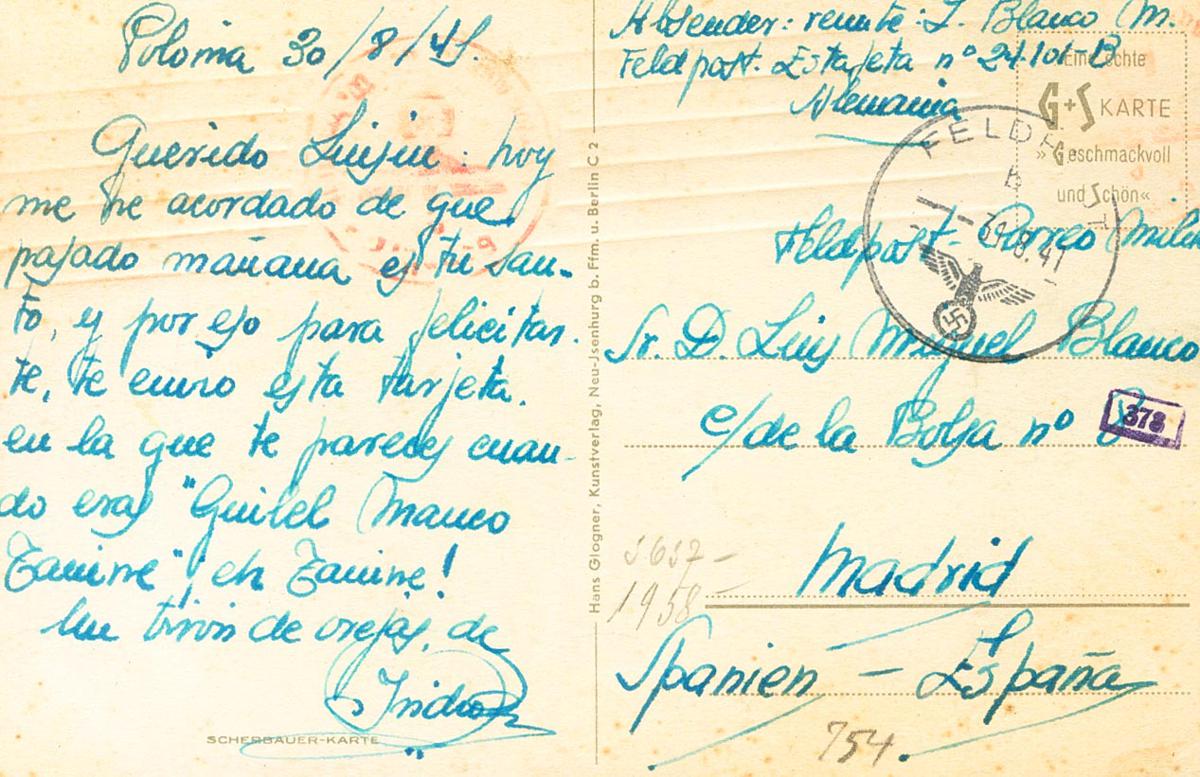 Polonia 30/8/41.
Querido Luisin: hoy
me he acordado de que
pasado mañana es tu san-
to, y por eso para felicitar-
te, te envio esta tarjeta.
en la que te pareces cuan-
do eras "Guilel Mauco
Tanine" eh Tanine!
Un tirón de orejas, de
Isidro
SCHERBAUER-KARTE
Hans Glogner, Kunstverlag, Neu-Jsenburg b. Ffm. u. Berlin C 2
Absender: remite: I. Blanco M.
Feldpost. Estafeta nº 24.101-B
Alemania
Eine echte
G+S KARTE
»Geschmackvoll
und Schön«
FELDP
31.8.41
Feldpost- Correo Milit
Sr. D. Luis Miguel Blanco
c/ de la Bolsa nº 8
378
Madrid
Spanien - España
1958
754.